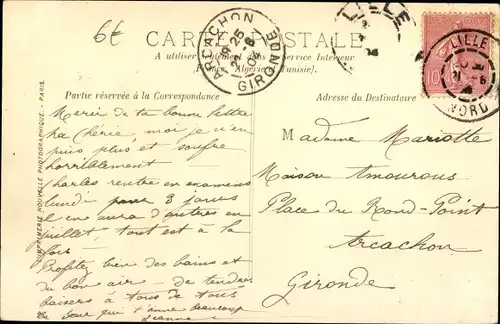 6t
CARTE POSTALE
A utiliser seulement dans le Service Intérieur
(France, Algérie et Tunisie).
ARCACHON
GIRONDE
LILLE
LILLE
NORD
10
Partie réservée à la Correspondance
Adresse du Destinataire
IMPRIMERIE NOUVELLE PHOTOGRAPHIQUE - PARIS.
Merci de ta bonne lettre
ma Chérie, moi je n'en
puis plus et souffre
horriblement
Charles rentre en examens
lundi pour 3 jours
il en aura d'autres en
juillet, tout est à la
fois
Profitez bien des bains et
du bon air - de tendres
baisers à tous de tous
ta soeur qui t'aime beaucoup
Jeanne
Madame Mariotte
Maison Amourous
Place du Rond-Point
Arcachon
Gironde